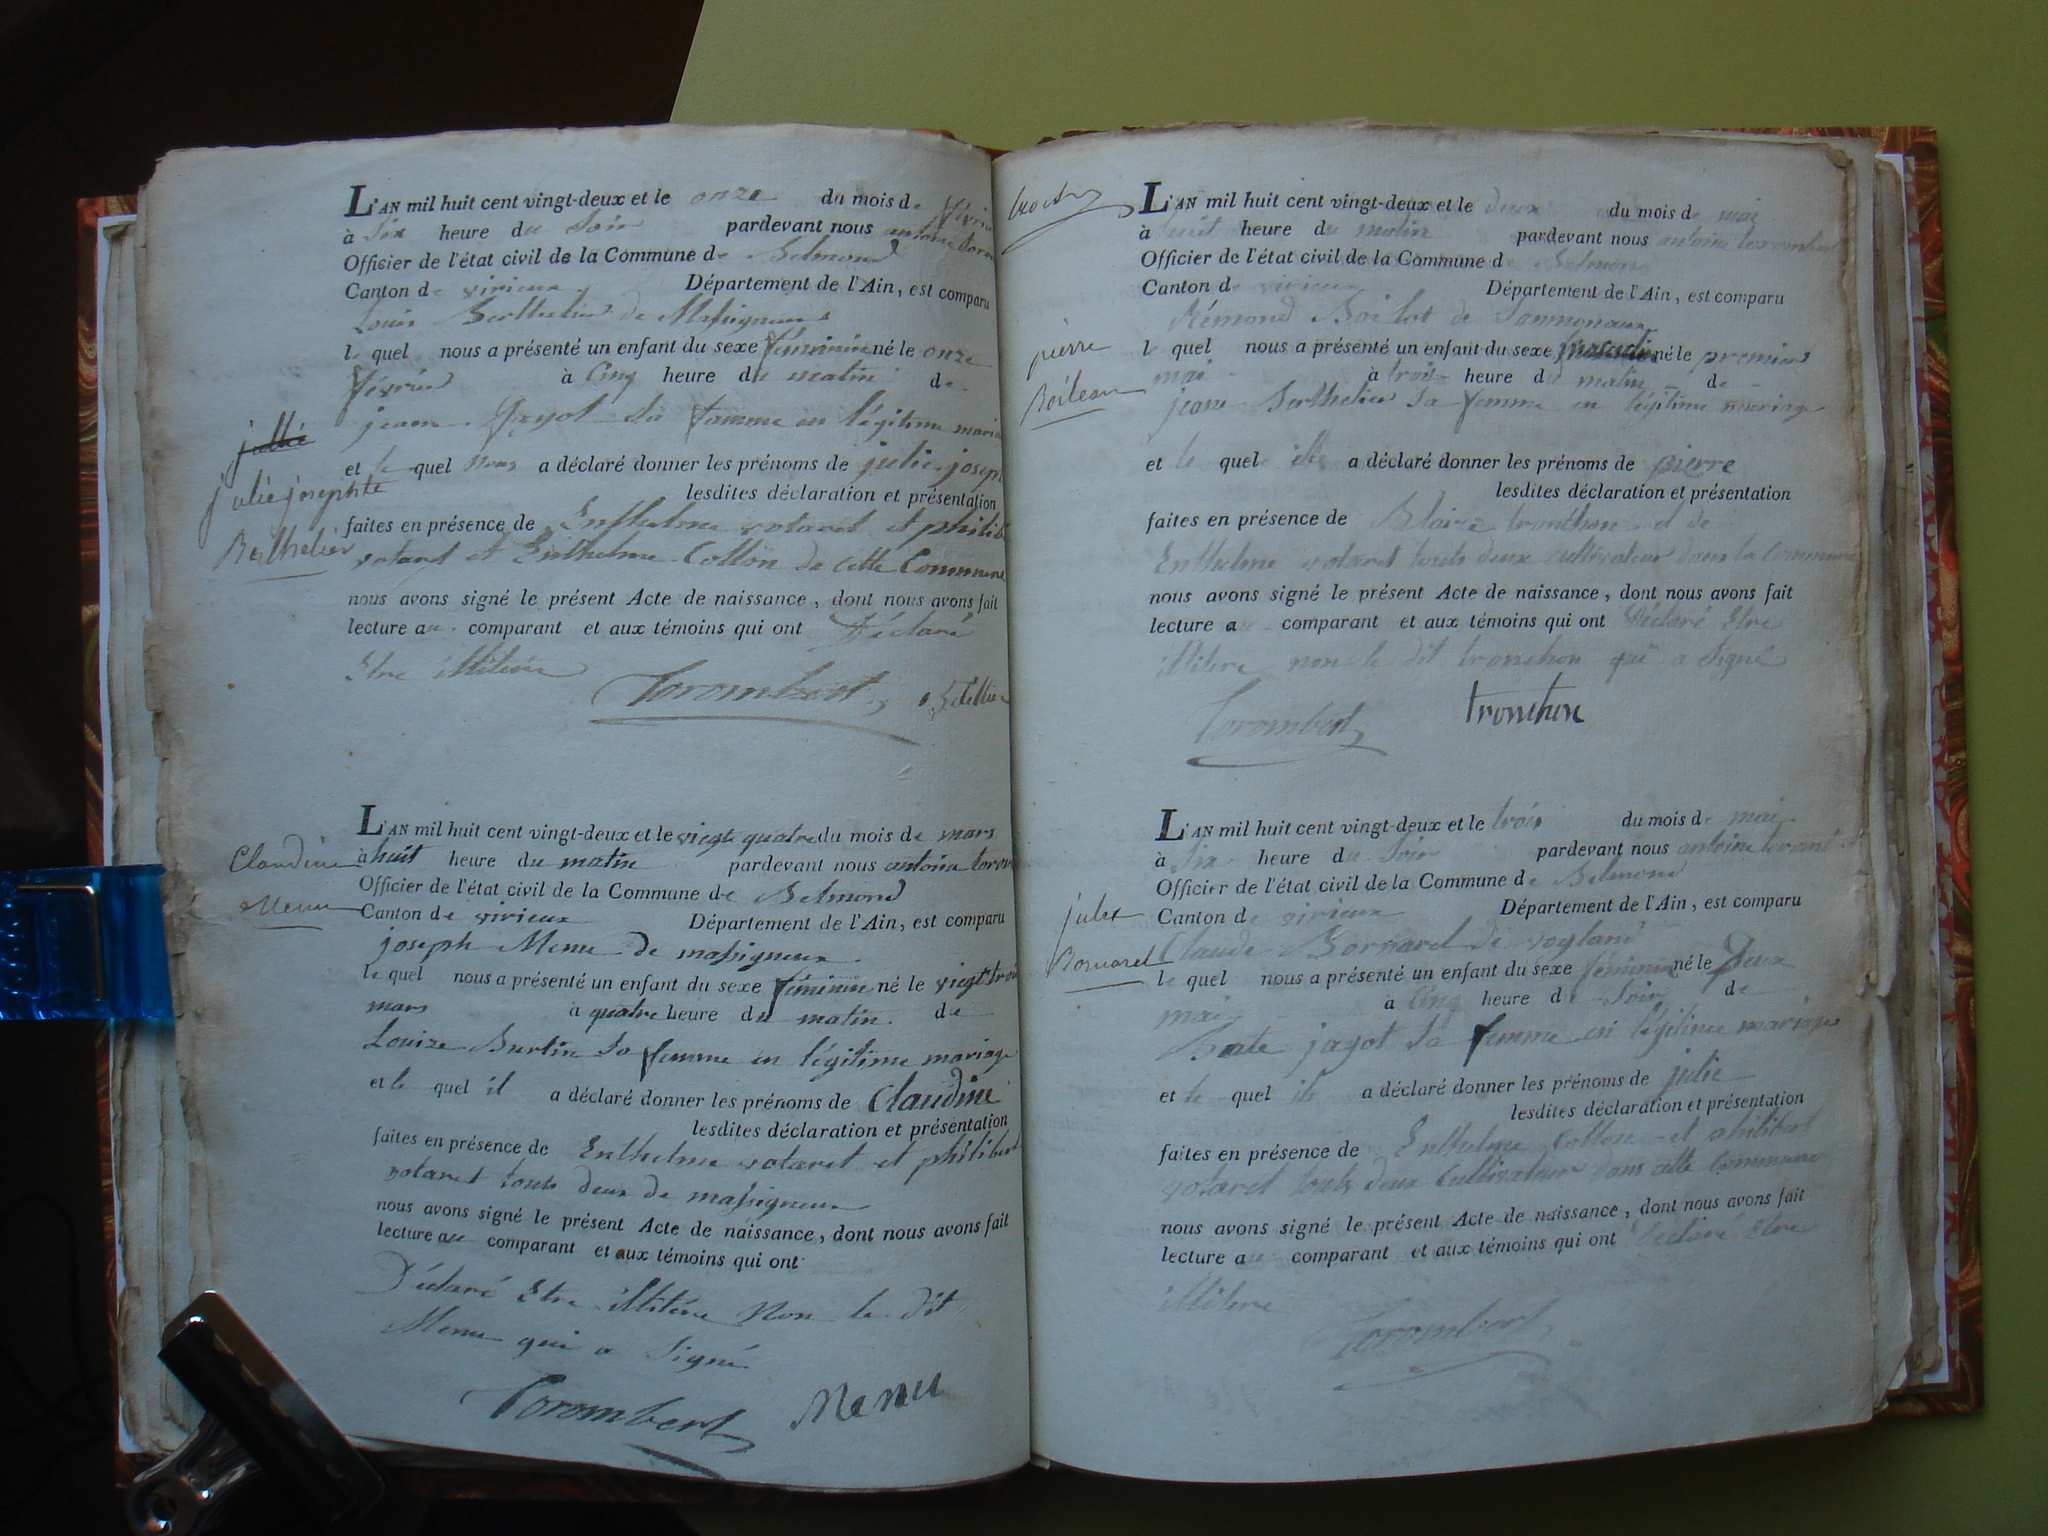 L'AN mil huit cent vingt-deux et le onze du mois de février
à Six heure du Soir pardevant nous antoine torom
Officier de l'état civil de la Commune de Belmond
Canton de virieux Département de l'Ain, est comparu
Louis Berthelier de Massigneux
le quel nous a présenté un enfant du sexe féminin né le onze
février à Cinq heure du matin de
jeane jayot sa famme en légitime maria
et le quel nous a déclaré donner les prénoms de julie joseph
lesdites déclaration et présentation
faites en présence de Enthelme votaret et philib
votaret et Enthelme Cotton de cette Commune
nous avons signé le présent Acte de naissance, dont nous avons fait
lecture au comparant et aux témoins qui ont Déclaré
Etre illitére
Torombert
julie
julie josephte
Berthelier
L'AN mil huit cent vingt-deux et le vingt quatre du mois de mars
à huit heure du matin pardevant nous antoine torom
Officier de l'état civil de la Commune de Belmond
Canton de virieux Département de l'Ain, est comparu
joseph Menu de massigneux
le quel nous a présenté un enfant du sexe féminin né le vingt trois
mars à quatre heure du matin de
Louize Burtin sa femme en légitime mariage
et le quel il a déclaré donner les prénoms de Claudine
lesdites déclaration et présentation
faites en présence de Enthelme votaret et philibert
votaret touts deux de massigneux
nous avons signé le présent Acte de naissance, dont nous avons fait
lecture au comparant et aux témoins qui ont
Déclaré Etre illitére Non le Dit
Menu qui a Signé
Torombert Menu
Claudine
Menu
L'AN mil huit cent vingt-deux et le deux du mois de mai
à huit heure du matin pardevant nous antoine torombert
Officier de l'état civil de la Commune de Belmond
Canton de virieux Département de l'Ain, est comparu
Rémond Boilot de
le quel nous a présenté un enfant du sexe né le premier
mai à trois heure du matin de
jeane Berthelier sa femme en légitime mariage
et le quel il a déclaré donner les prénoms de pierre
lesdites déclaration et présentation
faites en présence de Blaize tronchon et de
Enthelme votaret touts deux cultivateur dans la Commune
nous avons signé le présent Acte de naissance, dont nous avons fait
lecture au comparant et aux témoins qui ont Déclaré Etre
illitere non le dit tronchon qui a Signé
Torombert tronchon
pierre
Boileau
L'AN mil huit cent vingt-deux et le trois du mois de mai
à Six heure du Soir pardevant nous antoine
Officier de l'état civil de la Commune de Belmond
Canton de virieux Département de l'Ain, est comparu
Claude Bornarel de vogland
le quel nous a présenté un enfant du sexe féminin né le Deux
mai à Cinq heure du Soir de
jayot sa femme en légitime mariage
et le quel il a déclaré donner les prénoms de julie
lesdites déclaration et présentation
faites en présence de Enthelme Cotton et philibert
votaret touts deux Cultivateur dans cette Commune
nous avons signé le présent Acte de naissance, dont nous avons fait
lecture au comparant et aux témoins qui ont Déclaré Etre
illitere
Torombert
Bornarel